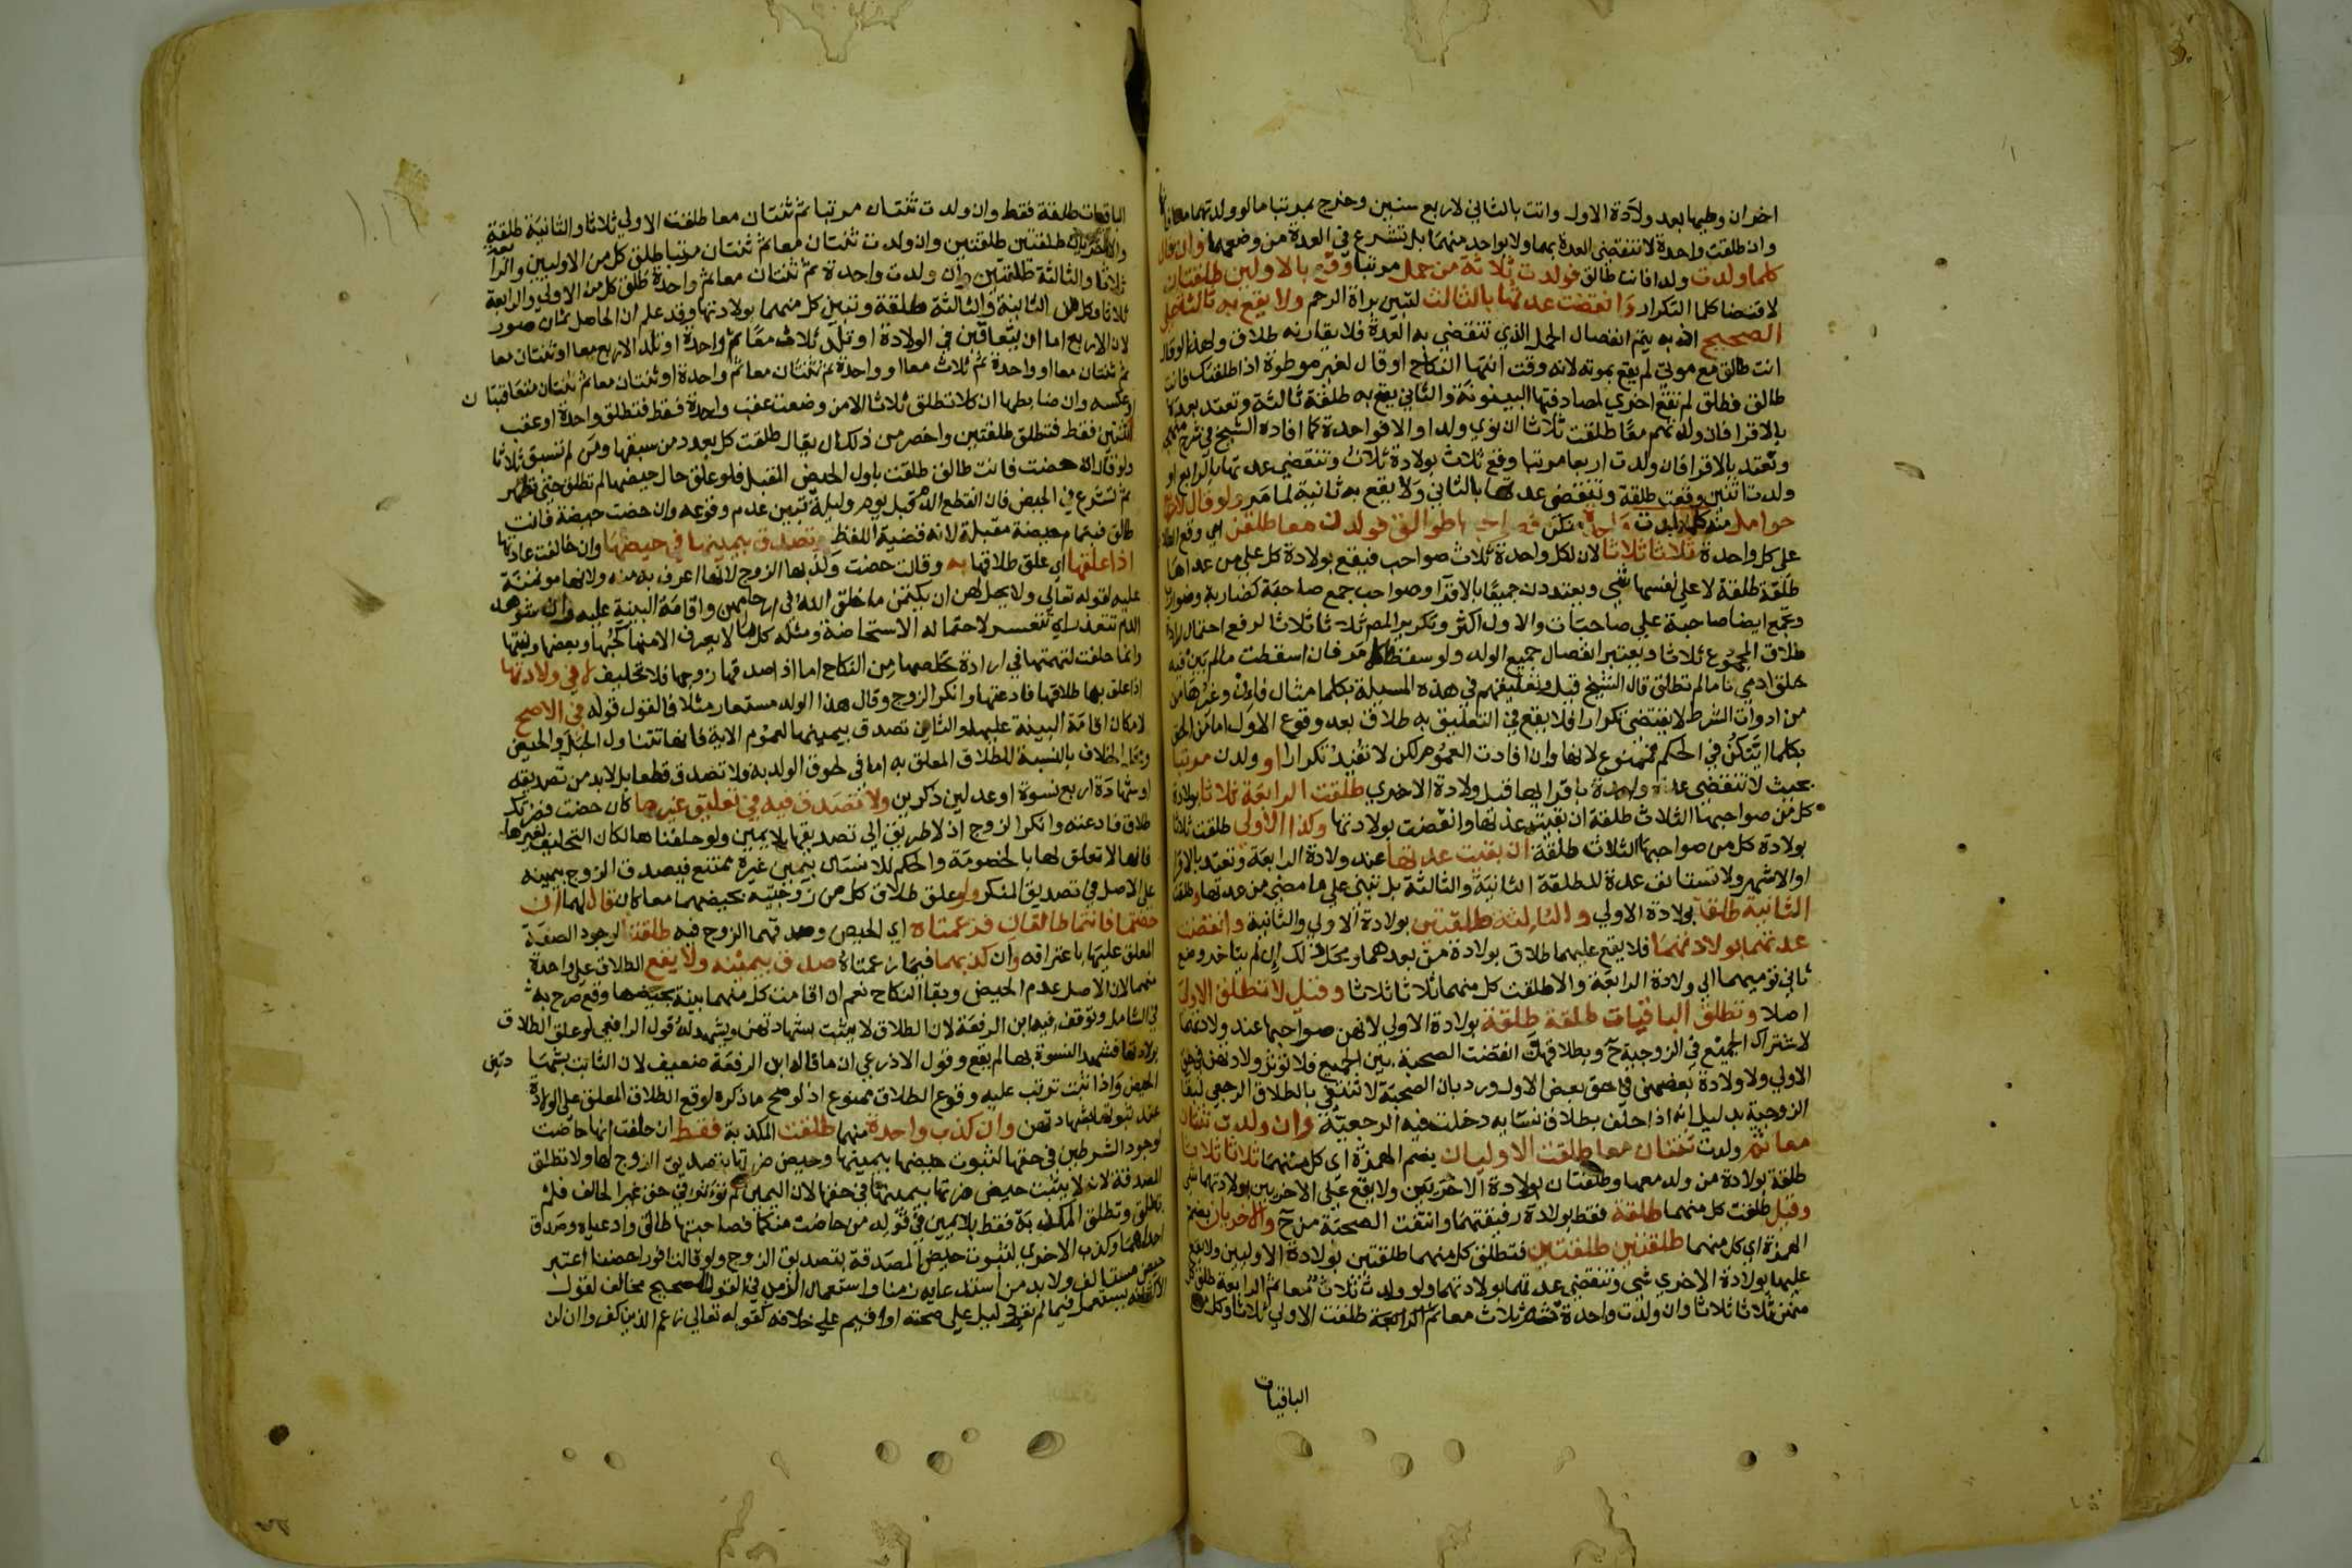 اخران وطيها بعد ولادة الاول واتت بالثاني لاربع سنين وخرج بمرتبا ما لو ولدتهما معا فانها
وان طلقت واحدة لا تنقضي العدة بهما ولا بواحد منهما بل تشرع في العدة من وضعهما وان قال
كلما ولدت ولدا فانت طالق فولدت ثلاثة من حمل مرتبا وقع بالاولين طلقتان
لاقتضا كلما التكرار وانقضت عدتها بالثالث لتبين براة الرحم ولا يقع به ثالثة على
الصحيح اذ به يتم انفصال الحمل الذي تنقضي به العدة فلا يقارنه طلاق ولهذا لو قال
انت طالق مع موتي لم يقع بموته لانه وقت انتها النكاح او قال لغير موطوة اذا طلقتك فانت
طالق فطلق لم تقع اخري لمصادفتها البينونة والثاني يقع به طلقة ثالثة وتعتد بعده
بالاقرا فان ولدتهم معا طلقت ثلاثا ان نوي ولدا والا فواحدة كما افاده الشيخ في شرح منهجه
وتعتد بالاقرا فان ولدت اربعا مرتبا وقع ثلاث بولادة ثلاث وتنقضي عدتها بالرابع او
ولدت اثنين وقعت طلقة وتنقضي عدتها بالثاني ولا يقع به ثانية لما مر ولو قال لاربع
حوامل منه كلما ولدت واحدة منكن فصواحبها طوالق فولدن معا طلقن اي وقع الطلاق
على كل واحدة ثلاثا ثلاثا لان لكل واحدة ثلاث صواحب فيقع بولادة كل على من عداها
طلقة طلقة لا على نفسها شي ويعتددن جميعا بالاقرا وصواحب جمع صاحبة كضاربة وضوارب
وتجمع ايضا صاحبة علي صاحبات والاول اكثر وتكرير المصـ ثلاثا ثلاثا لرفع احتمال ارادة
طلاق المجموع ثلاثا ويعتبر انفصال جميع الولد ولو سقطا كما مر فان اسقطت ما لم يبن فيه
خلق ادمي تاما لم تطلق قال الشيخ قيل وتعليقهم في هذه المسيلة بكلما مثال فان وغيرها من
من ادوات الشرط لا يقتضي تكرارا فلا يقع في التعليق به طلاق بعد وقوع الاول اما من الحق
بكلما ايتكن في الحكم فممنوع لانها وان افادت العموم لكن لا تفيد تكرارا او ولدن مرتبا
بحيث لا تنقضي عدة واحدة باقرايها قبل ولادة الاخري طلقت الرابعة ثلاثا بولادة
كل من صواحبها الثلاث طلقة ان بقيت عدتها وانقضت بولادتها وكذا الاولي طلقت ثلاثا
بولادة كل من صواحبها الثلاث طلقة ان بقيت عدتها عند ولادة الرابعة وتعتد بالاقرا
او الاشهر ولا تستانف عدة للطلقة الثانية والثالثة بل تبني علي ما مضي من عدتها وطلقت
الثانية طلقة بولادة الاولي والثالثة طلقتين بولادة الاولي والثانية وانقضت
عدتهما بولادتهما فلا يقع عليهما طلاق بولادة من بعدهما ومحل ذلك ان لم يتاخر وضع
ثاني توميهما الي ولادة الرابعة والا طلقت كل منهما ثلاثا ثلاثا وقيل لا تطلق الاولي
اصلا وتطلق الباقيات طلقة طلقة بولادة الاولي لانهن صواحبها عند ولادتها
لاشتراك الجميع في الزوجية ح وبطلاقهن انقضت الصحبة بين الجميع فلا تؤثر ولادتهن في حق
الاولي ولا ولادة بعضهن في حق بعض الاول ورد بان الصحبة لا تنتفي بالطلاق الرجعي لبقا
الزوجية بدليل انه اذا حلف بطلاق نسايه دخلت فيه الرجعية وان ولدت ثنتان
معا ثم ولدت ثنتان معا طلقت الاوليان بضم الهمزة اي كل منهما ثلاثا ثلاثا
طلقة بولادة من ولد معها وطلقتان بولادة الاخريين ولا يقع على الاخريين بولادتهما شي
وقيل طلقت كل منهما طلقة فقط بولادة رفيقتهما وانتفت الصحبة من ح والاخريان بضم
الهمزة اي كل منهما طلقتين طلقتين فتطلق كل منهما طلقتين بولادة الاوليين ولا يقع
عليها بولادة الاخري شي وتنقضي عدتهما بولادتهما ولو ولدت ثلاث معا ثم الرابعة طلق كل
منهن ثلاثا ثلاثا وان ولدت واحدة ثم ثلاث معا ثم الرابعة طلقت الاولي ثلاثا وكل من
الباقيات
الباقيات طلقة فقط وان ولدت ثنتان مرتبا ثم ثنتان معا طلقت الاولي ثلاثا والثانية طلقة
والاخريان طلقتين طلقتين وان ولدت ثنتان معا ثم ثنتان مرتبا طلق كل من الاوليين والرابعة
ثلاثا والثالثة طلقتين وان ولدت واحدة ثم ثنتان معا ثم واحدة طلق كل من الاولي والرابعة
ثلاثا وكل من الثانية والثالثة طلقة وتبين كل منهما بولادتها وقد علم ان الحاصل ثمان صور
لان الاربع اما ان يتعاقبن في الولادة او تلد ثلاث معا ثم واحدة او تلد الاربع معا او ثنتان معا
ثم ثنتان معا او واحدة ثم ثلاث معا او واحدة ثم ثنتان معا ثم واحدة او ثنتان معا ثم ثنتان متعاقبتان
او عكسه وان ضابطها ان كلا تطلق ثلاثا الا من وضعت عقب واحدة فقط فتطلق واحدة او عقب
اثنتين فقط فتطلق طلقتين واخصر من ذلك ان يقال طلقت كل بعدد من سبقها ومن لم تسبق ثلاثا
ولو قال ان حضت فانت طالق طلقت باول الحيض المقبل فلو علق حال حيضها لم تطلق حتي تطهر
ثم تشرع في الحيض فان انقطع الدم قبل يوم وليلة تبين عدم وقوعه وان حضت حيضة فانت
طالق فبتمام حيضة مقبلة لانه قضية اللفظ وتصدق بيمينها في حيضها وان خالفت عادتها
اذا علقها اي علق طلاقها به وقالت حضت وكذبها الزوج لانها اعرف به منه ولانها مؤتمنة
عليه لقوله تعالي ولا يحل لهن ان يكتمن ما خلق الله في ارحامهن واقامة البينة عليه وان شوهد
الدم تتعذر اي تتعسر لاحتماله الاستحاضة ومثله كل ما لا يعرف الا منها كحبها وبغضها ونيتها
وانما حلفت لتهمتها في ارادة تخلصها من النكاح اما اذا صدقها زوجها فلا تحليف لا في ولادتها
اذا علق بها طلاقها فادعتها وانكر الزوج وقال هذا الولد مستعار مثلا فالقول قوله في الاصح
لامكان اقامة البينة عليها والثاني تصدق بيمينها لعموم الاية فانها تتناول الحبل والحيض
ومحل الخلاف بالنسبة للطلاق المعلق به اما في لحوق الولد به ولا تصدق قطعا بل لا بد من تصديقه
او شهادة اربع نسوة او عدلين ذكرين ولا تصدق فيه في تعليق غيرها كان حضت فضرتك
طالق فادعته وانكر الزوج اذ لا طريق الي تصديقها بلا يمين ولو حلفناها لكان التحليف لغيرها
فانها لا تعلق لها بالخصومة والحكم للانسان بيمين غيره ممتنع فيصدق الزوج بيمينه
على الاصل في تصديق المنكر ولو علق طلاق كل من زوجتيه بحيضهما معا كان قال لهما ان
حضتما فانتما طالقان فزعمتاه اي الحيض وصدقهما الزوج فيه طلقتا لوجود الصفة
المعلق عليها باعترافه وان كذبهما فيما زعمتاه صدق بيمينه ولا يقع الطلاق على واحدة
منهما لان الاصل عدم الحيض وبقا النكاح نعم ان اقامت كل منهما بينة بحيضها وقع صرح به
في الشامل وتوقف فيه ابن الرفعة لان الطلاق لا يثبت بشهادتهن ويشهد له قول الرافعي لو علق الطلاق
بولادتها فشهد النسوة بها لم يقع وقول الاذرعي ان ما قاله ابن الرفعة ضعيف لان الثابت بشهادتهن
الحيض واذا ثبت ترتب عليه وقوع الطلاق ممنوع اذ لو صح ما ذكره لوقع الطلاق المعلق على الولادة
عند ثبوتها بشهادتهن وان كذب واحدة منهما طلقت المكذبة فقط ان حلفت انها حاضت
لوجود الشرطين في حقها لثبوت حيضها بيمينها وحيض ضرتها بتصديق الزوج لها ولا تطلق
المصدقة لانه لا يثبت حيض ضرتها بيمينها في حقها لان اليمين لم تؤثر في حق غير الحالف فلم
تطلق وتطلق المكذبة فقط بلا يمين في قوله من حاضت منكما فصاحبتها طالق وادعياه وصدق
احداهما وكذب الاخري لثبوت حيض المصدقة بتصديق الزوج ولو قالت فورا حضنا اعتبر
حيض مستانف ولا بد من استدعايه زمنا واستعمال الزعم في القول الصحيح مخالف لقول
الاكثر انه يستعمل فيما لم يقم دليل على صحته او اقيم علي خلافه كقوله تعالي زعم الذين كفروا ان لن